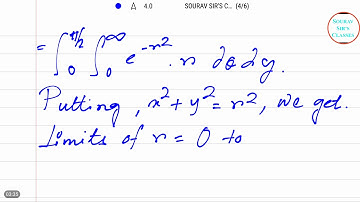 4.0 SOURAV SIR'S C... (4/6)
SOURAV SIR'S CLASSES
= ∫₀^{π/2} ∫₀^∞ e^{-r²} · r ∂θ ∂y.
Putting, x² + y² = r², we get.
Limits of r = 0 to
03:35